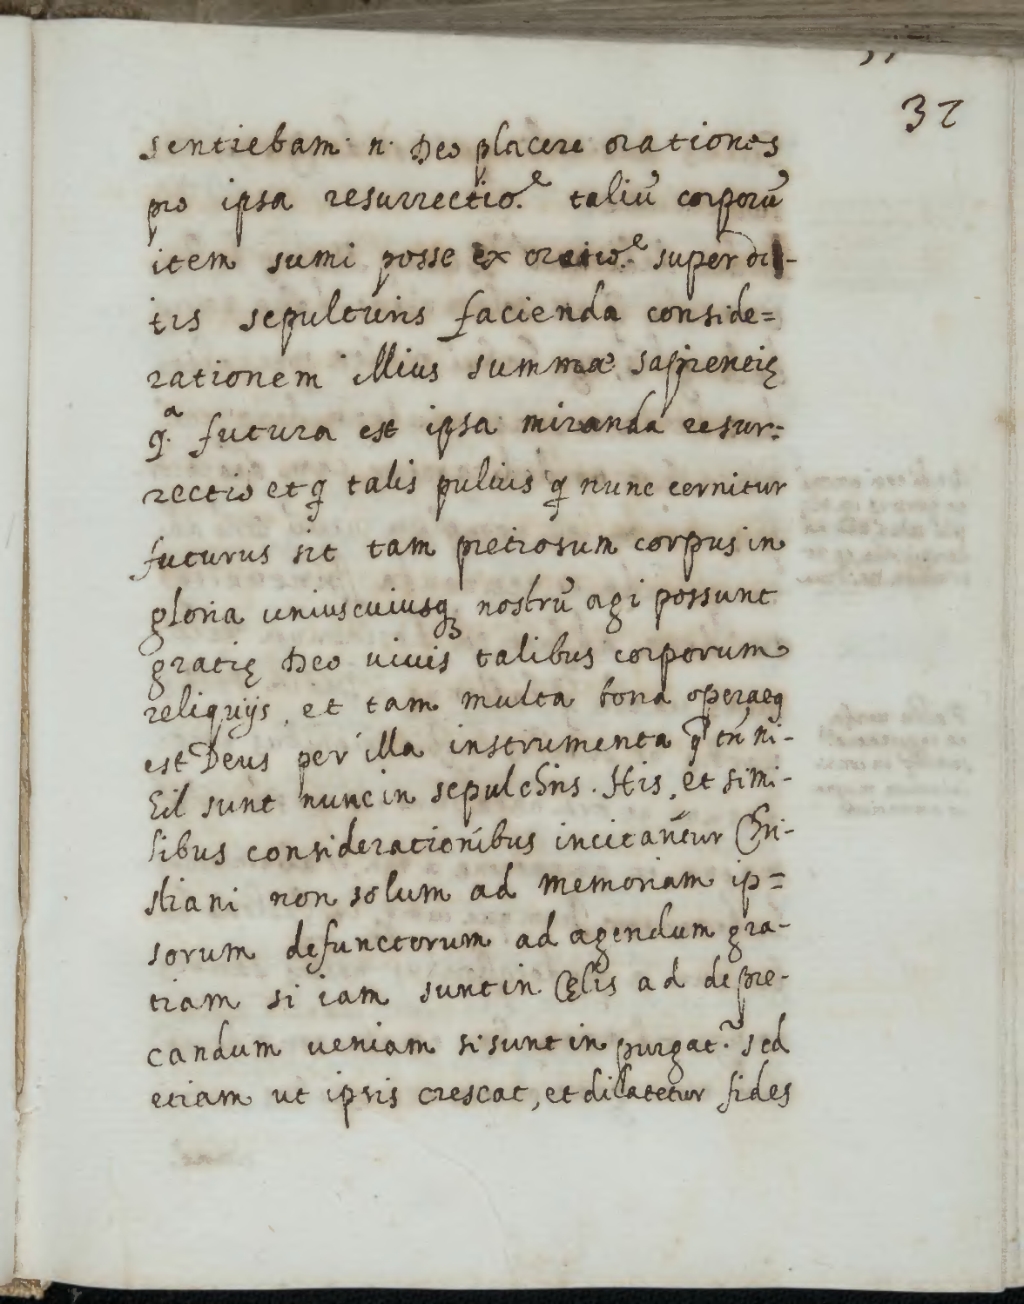 37
sentiebam. n. Deo placere orationes
pro ipsa resurrectio.e taliũ corporũ
item sumi posse ex oratio.e super di-
tis sepulturis facienda conside=
rationem illius summæ sapientię
q.a futura est ipsa miranda resur=
rectio et q talis puluis q nunc cernitur
futurus sit tam pretiosum corpus in
gloria uniuscuiusq; nostrũ agi possunt
gratię Deo uiuis talibus corporum
reliquijs, et tam multa bona
est Deus per illa instrumenta q tñ ni-
hil sunt nunc in sepulchris. His, et simi-
libus considerationibus incitantur Chri-
stiani non solum ad memoriam ip=
sorum defunctorum ad agendum gra-
tiam si iam sunt in Cęlis ad depre-
candum ueniam si sunt in purgat.o sed
etiam ut ipsis crescat, et dilatetur fides